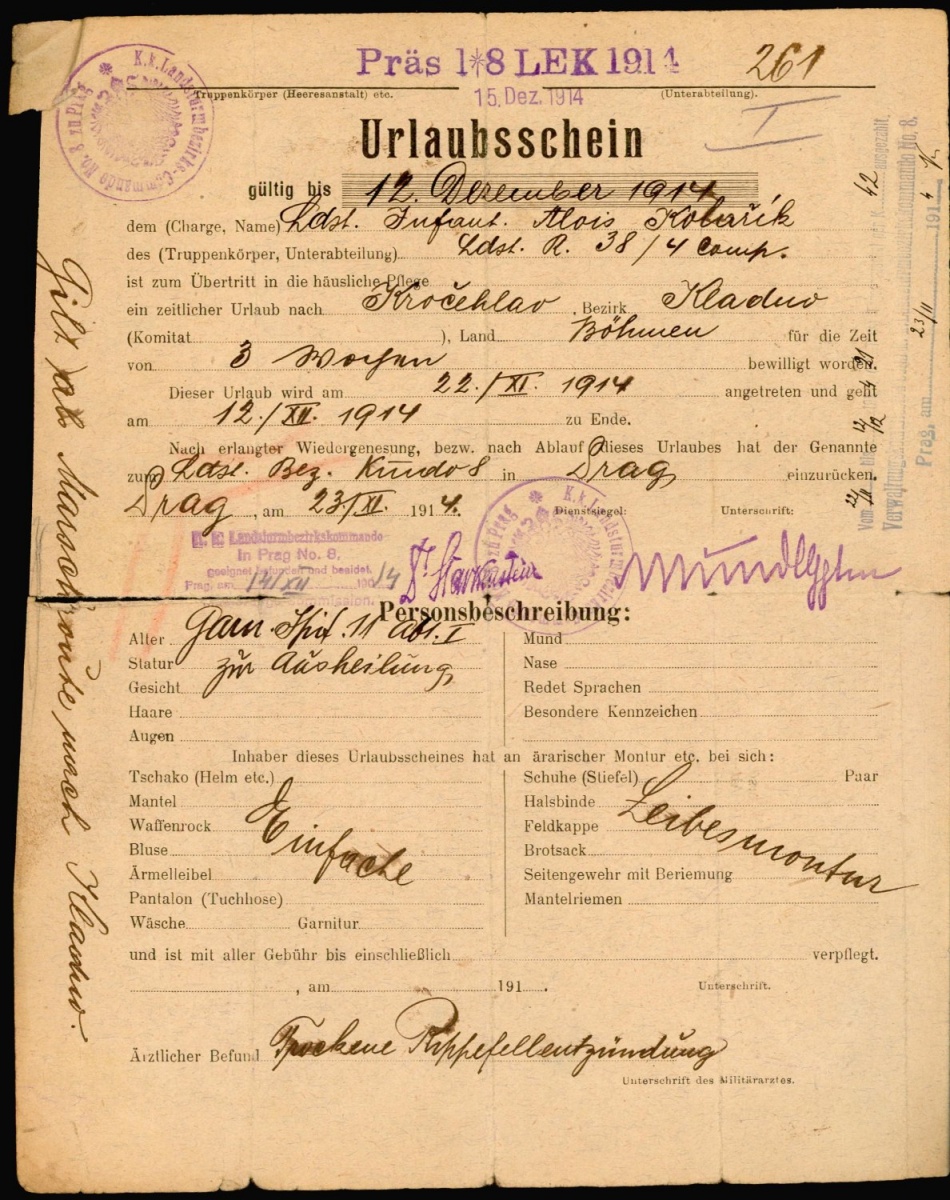 K.k. Landsturmbezirks-Commando No. 8 zu Prag
Präs 1*8 LEK 1914
261
Truppenkörper (Heeresanstalt) etc.
15. Dez. 1914
(Unterabteilung).
I
Urlaubsschein
gültig bis 12. Dezember 1914
dem (Charge, Name) Ldst. Infant. Alois Kobařík
des (Truppenkörper, Unterabteilung) Ldst. R. 38/4 Comp.
ist zum Übertritt in die häusliche Pflege
ein zeitlicher Urlaub nach Kročehlav, Bezirk Kladno
(Komitat ), Land Böhmen für die Zeit
von 3 Wochen bewilligt worden.
Dieser Urlaub wird am 22./XI. 1914 angetreten und geht
am 12./XII. 1914 zu Ende.
Nach erlangter Wiedergenesung, bezw. nach Ablauf dieses Urlaubes hat der Genannte
zum Ldst. Bez. Kmdo 8 in Prag einzurücken.
Prag, am 23/XI. 1914. Dienstsiegel: Unterschrift:
K. k. Landsturmbezirkskommando
in Prag No. 8.
geeignet befunden und beeidet.
Prag, am 14/XII 1914
Dr Starkenstein
Personsbeschreibung:
Alter Garn. Spit. 11 Abt. I
Statur zur Ausheilung
Gesicht
Haare
Augen
Mund
Nase
Redet Sprachen
Besondere Kennzeichen
Inhaber dieses Urlaubsscheines hat an ärarischer Montur etc. bei sich:
Tschako (Helm etc.)
Mantel
Waffenrock
Bluse
Einfache
Ärmelleibel
Pantalon (Tuchhose)
Wäsche Garnitur
Schuhe (Stiefel) Paar
Halsbinde
Leibesmontur
Feldkappe
Brotsack
Seitengewehr mit Beriemung
Mantelriemen
und ist mit aller Gebühr bis einschließlich verpflegt.
, am 191 . Unterschrift.
Ärztlicher Befund Trockene Rippefellentzündung
Unterschrift des Militärarztes.
Gilt als Marschroute nach Kladno.
Prag, am 23/11 1914